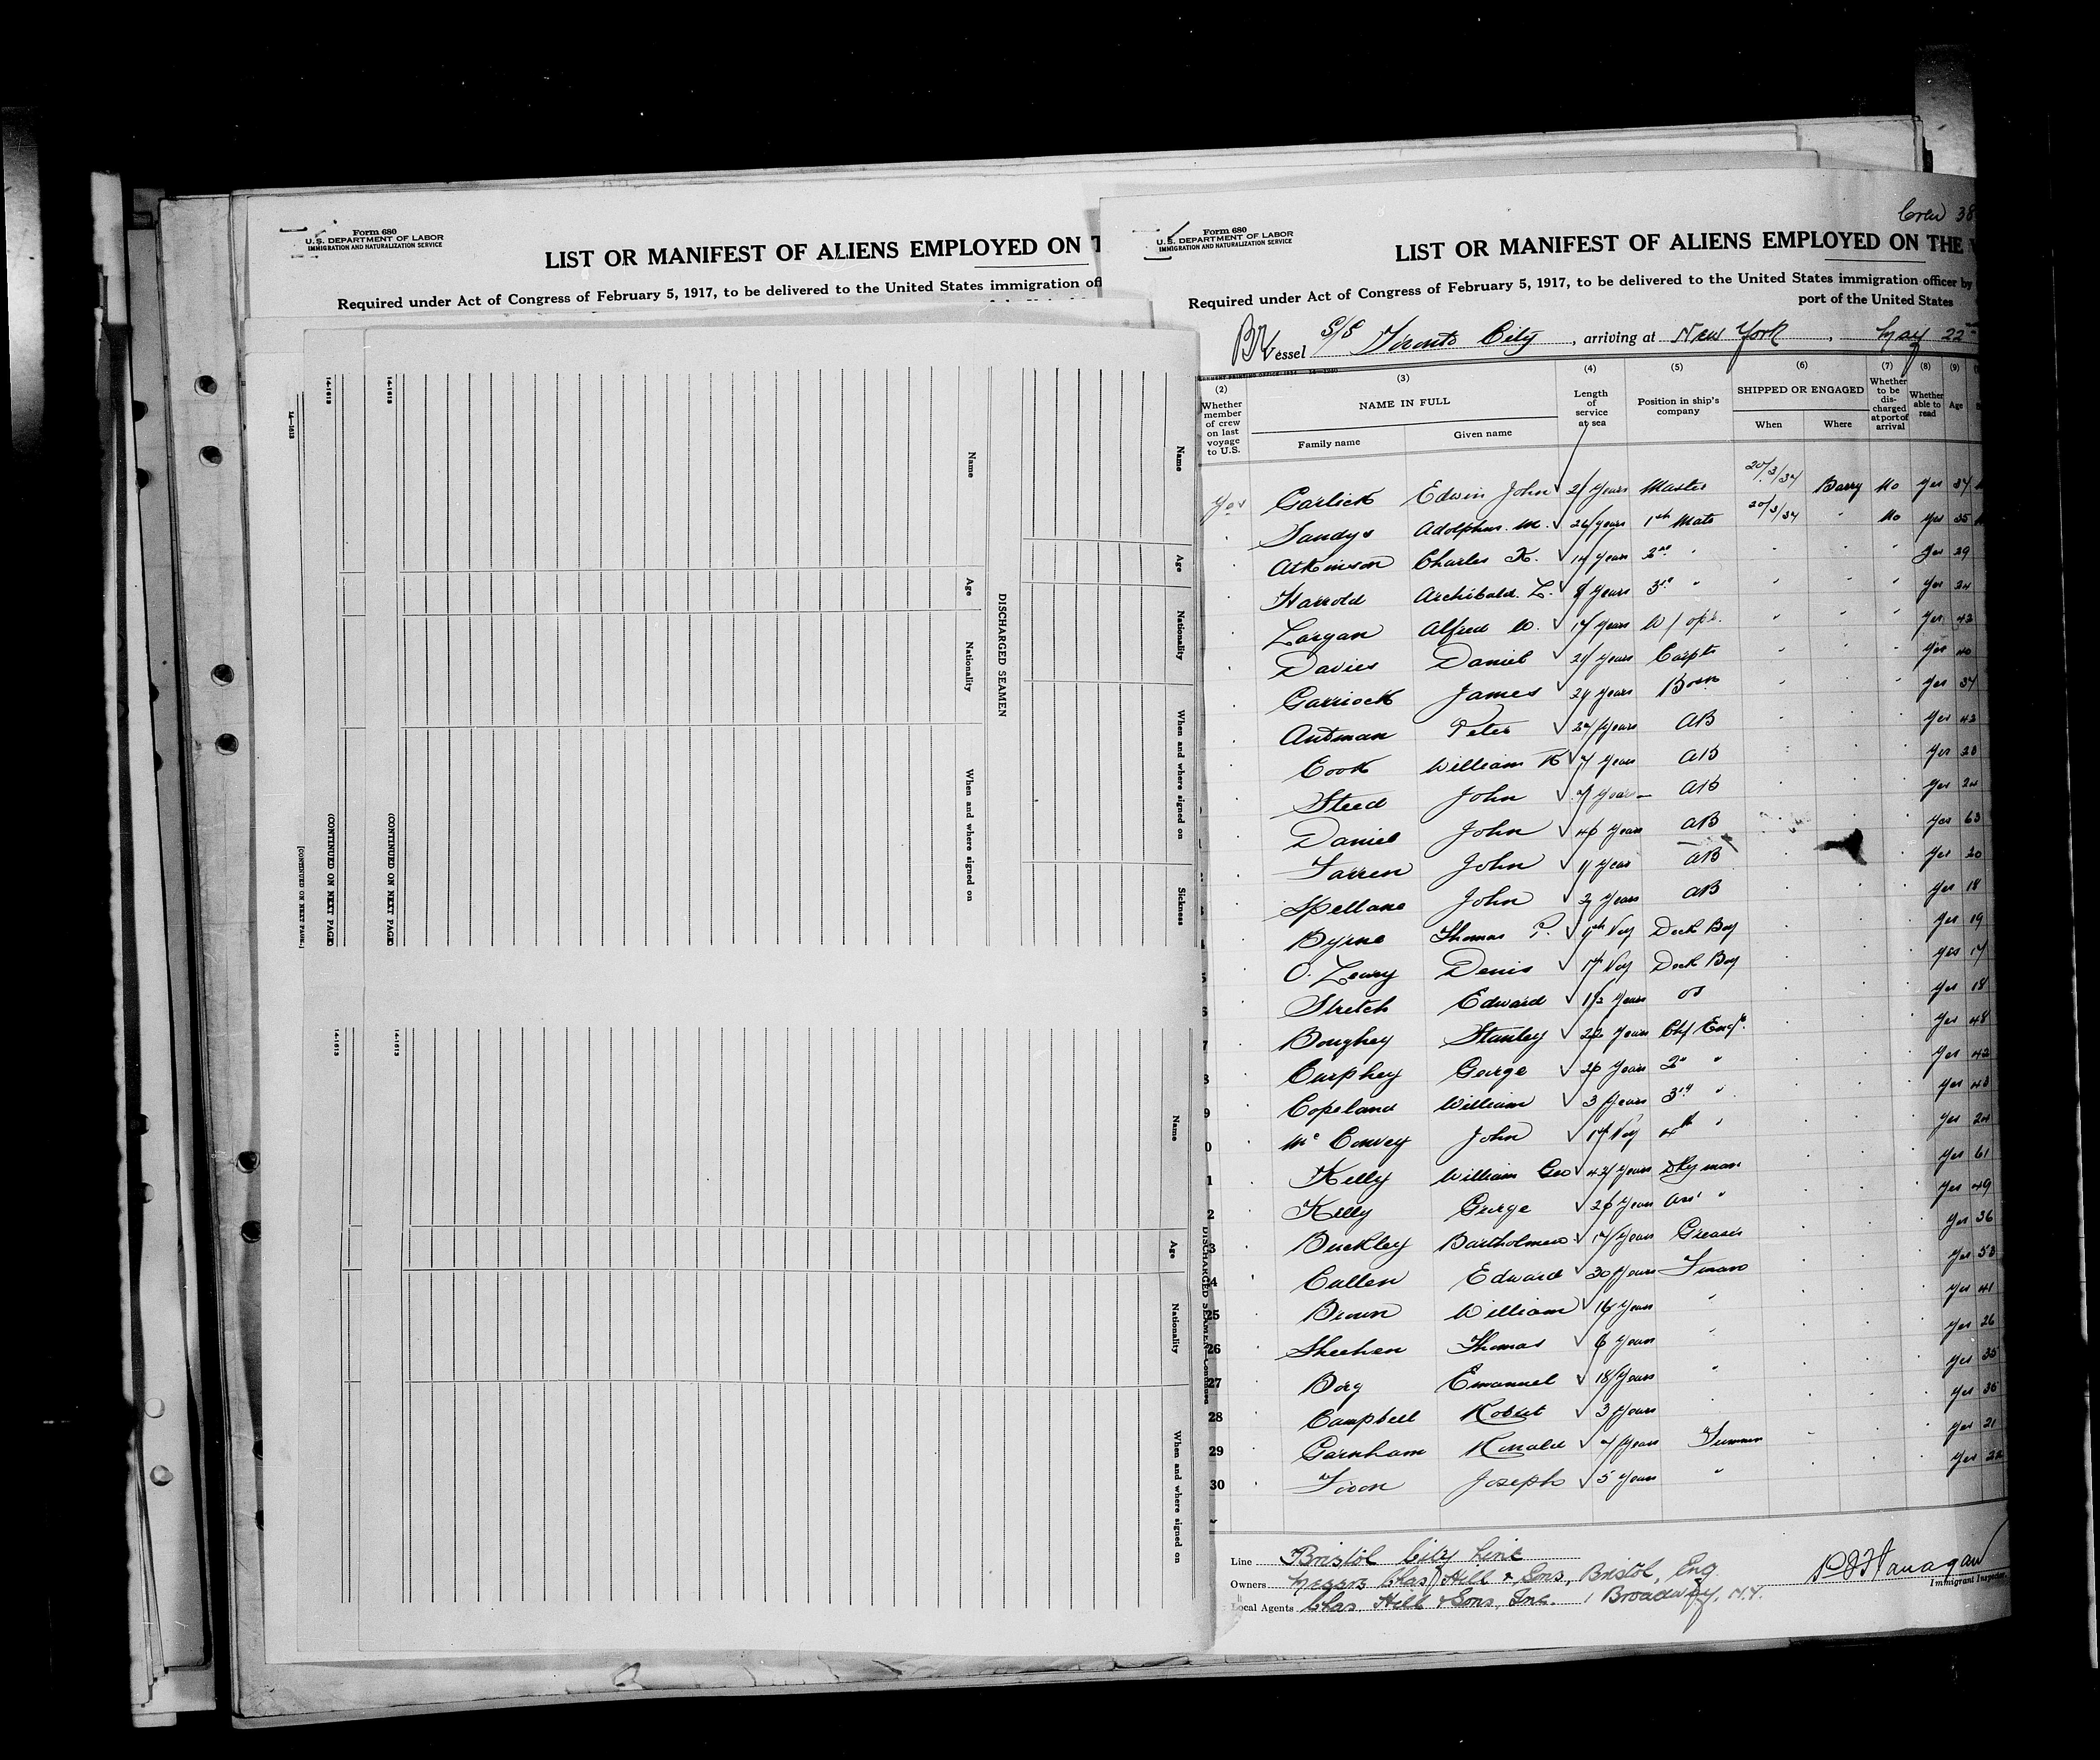 Form 680
U.S. DEPARTMENT OF LABOR
IMMIGRATION AND NATURALIZATION SERVICE
LIST OR MANIFEST OF ALIENS EMPLOYED ON T
Required under Act of Congress of February 5, 1917, to be delivered to the United States immigration off
14-1613
14-1613
14-1613
(CONTINUED ON NEXT PAGE)
(CONTINUED ON NEXT PAGE
[CONTINUED ON NEXT PAGE.]
Name
Age
Nationality
When and where signed on
DISCHARGED SEAMEN
Name
Age
Nationality
When and where signed on
Sickness
14-1613
14-1613
Name
Age
Nationality
When and where signed on
DISCHARGED SEAMEN—Continued
Crew 38
Form 680
U.S. DEPARTMENT OF LABOR
IMMIGRATION AND NATURALIZATION SERVICE
LIST OR MANIFEST OF ALIENS EMPLOYED ON THE
Required under Act of Congress of February 5, 1917, to be delivered to the United States immigration officer by
port of the United States
Br Vessel S/S Toronto City, arriving at New York, May 22
(2) (3) (4) (5) (6) (7) (8) (9)
Whether member of crew on last voyage to U.S.
NAME IN FULL
Family name Given name
Length of service at sea
Position in ship's company
SHIPPED OR ENGAGED
When Where
Whether to be discharged at port of arrival
Whether able to read
Age
Yes Garlick Edwin John 21 years Master 20/3/34 Barry No Yes 37
Sandys Adolphus. M. 26 years 1st Mate 20/3/34 " No Yes 35
Atkinson Charles K. 14 years 2nd " Yes 29
Harrold Archibald. L. 8 years 3rd " Yes 24
Largan Alfred W. 17 years W/opr. Yes 42
Davies Daniel 21 years Carptr Yes 40
Garriock James 24 years Bosn Yes 37
Antman Peter 24 years AB Yes 42
Cook William R 7 years AB Yes 23
Steed John 7 years AB Yes 24
Daniel John 46 years AB Yes 63
Farren John 4 years AB Yes 20
Spellane John 3 years AB Yes 18
Byrne Thomas P. 4th Voy Deck Boy Yes 19
O. Leary Denis 1st Voy Deck Boy Yes 17
Stretch Edward 1½ years OS Yes 18
Boughey Stanley 22 years Chf Engr. Yes 48
Curphey George 20 years 2nd " Yes 42
9 Copeland William 3 years 3rd " Yes 43
0 Mc Convey John 1st Voy 4th " Yes 24
1 Kelly William Geo 42 years Dkyman Yes 61
2 Kelly George 26 years Asst " Yes 49
3 Buckley Bartholmew 17 years Greaser Yes 36
24 Cullen Edward 30 years Fireman Yes 53
25 Brown William 16 years " Yes 41
26 Sheehan Thomas 6 years " Yes 26
27 Borg Emanuel 18 years " Yes 35
28 Campbell Robert 3 years Yes 35
29 Garnham Ronald 4 years Trimmer Yes 21
30 Joseph 5 years " Yes 22
Line Bristol City Line
Owners Messrs Chas Hill & Sons, Bristol, Eng.
Local Agents Chas Hill & Sons, Inc. 1 Broadway, N.Y.
Immigrant Inspector.